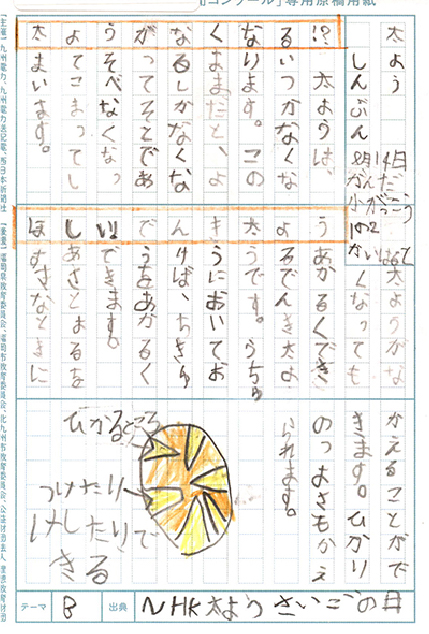 コンクール」専用原稿用紙
太よう
しんぶん
太ようがなくなる!?
太ようは、
いつかなくな
ります。この
ままだと、よ
るしかなくな
ってそとであ
そべなくなっ
てこまってし
まいます。
ほしい!でんき太よう
太ようがな
くなっても
あかるくでき
るでんき太よ
うです。うちゅ
うにおいてお
けば、ちきゅ
うをあかるく
できます。
あさとよるを
すきなときに
かえることがで
きます。ひかり
のつよさもかえ
られます。
ひかるところ
つけたり
けしたりで
きる
テーマ B 出典 NHK 太ようさいごの日
【主催】九州電力、九州電力送配電、西日本新聞社 【後援】福岡県教育委員会、福岡市教育委員会、北九州市教育委員会、公益財団法人